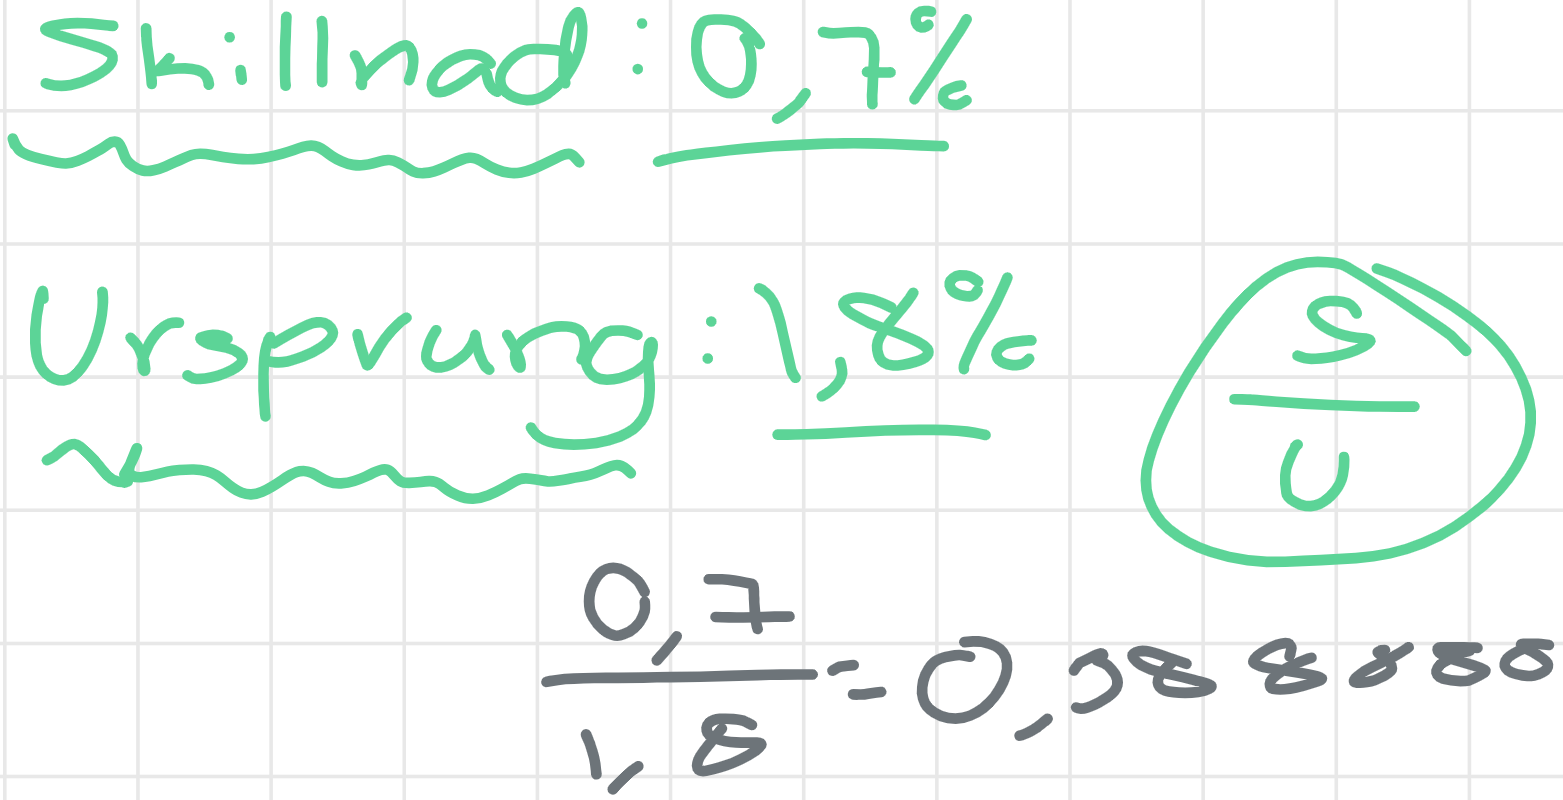 Skillnad: 0,7%
Ursprung: 1,8%
S
U
0,7
1,8
=0,388888